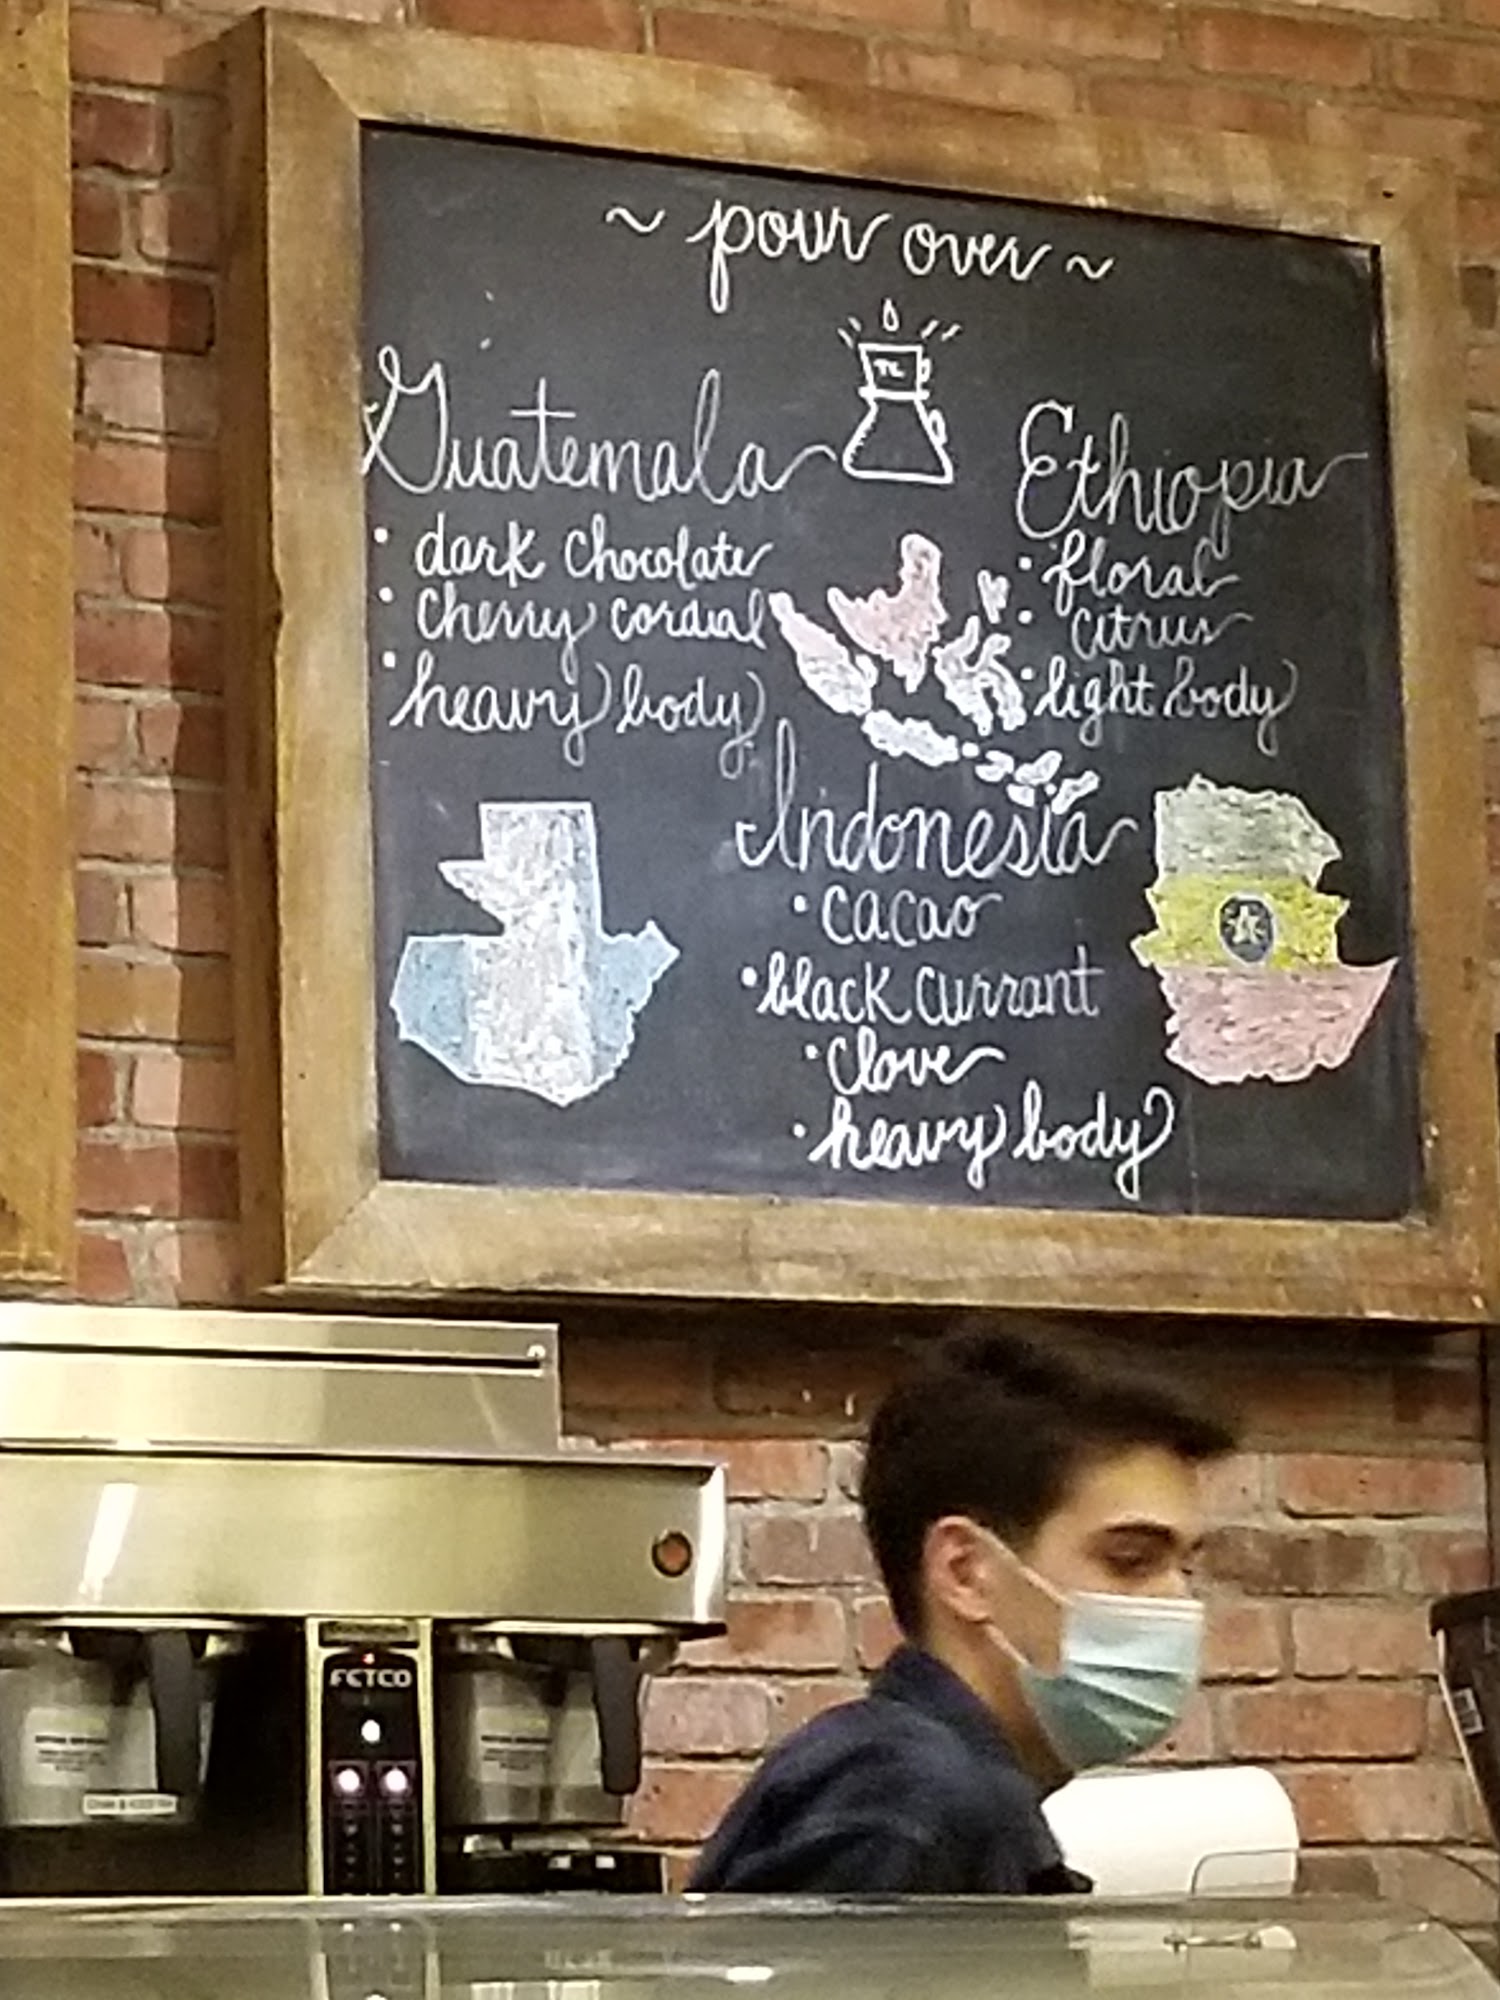 ~ pour over ~
TL
Guatemala
• dark chocolate
• cherry cordial
• heavy body
Ethiopia
• floral
• citrus
• light body
Indonesia
• cacao
• black currant
• clove
• heavy body
FETCO